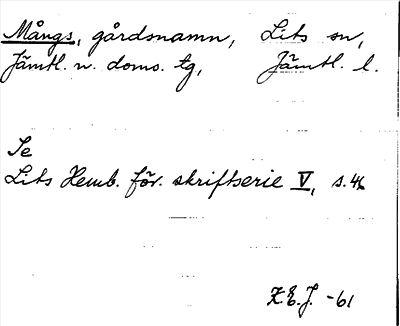 Mångs, gårdsnamn, Lits sn,
Jämtl. n. doms. tg, Jämtl. l.
Se
Lits Hemb. för. skriftserie V, s.
E.J. -61